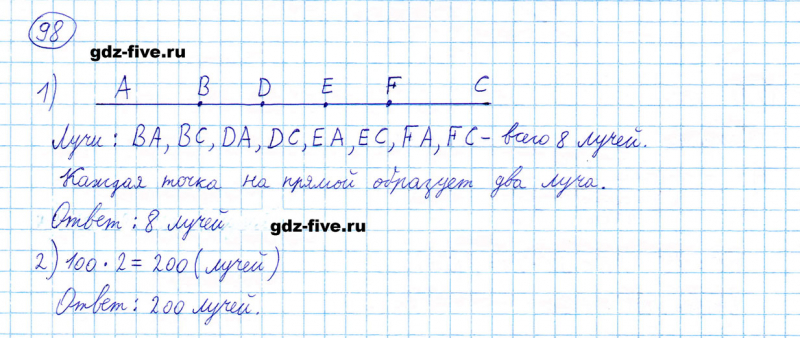 98
gdz-five.ru
1) A B D E F C
Лучи: BA, BC, DA, DC, EA, EC, FA, FC - всего 8 лучей.
Каждая точка на прямой образует два луча.
Ответ: 8 лучей
gdz-five.ru
2) 100 · 2 = 200 (лучей)
Ответ: 200 лучей.